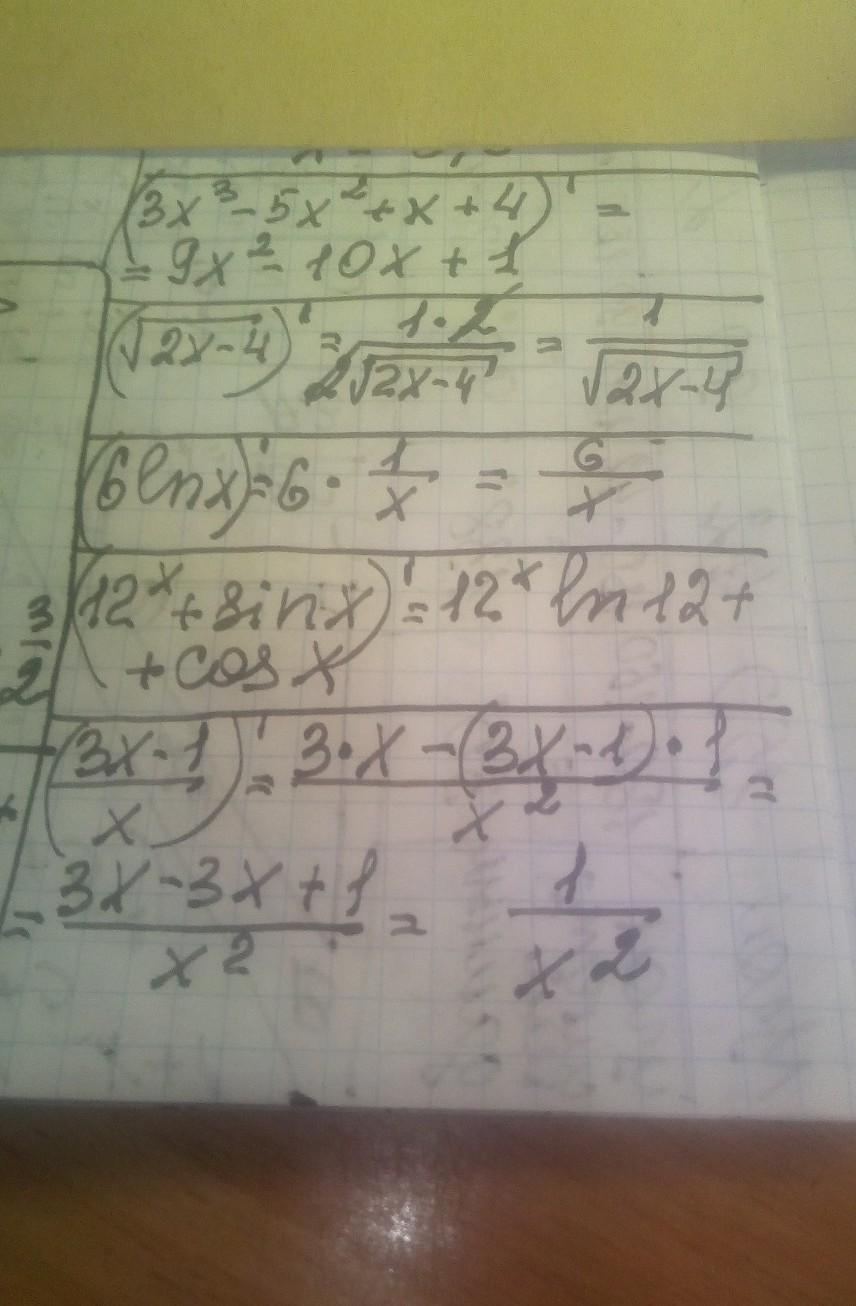 (3x³-5x²+x+4)' =
= 9x²-10x+1
(√2x-4)' = 1·2/2√2x-4 = 1/√2x-4
(6lnx)'=6·1/x = 6/x
(12ˣ+sinx)'=12ˣ ln12+
+cosx
3
2
((3x-1)/x)' = (3·x-(3x-1)·1)/x² =
= (3x-3x+1)/x² = 1/x²